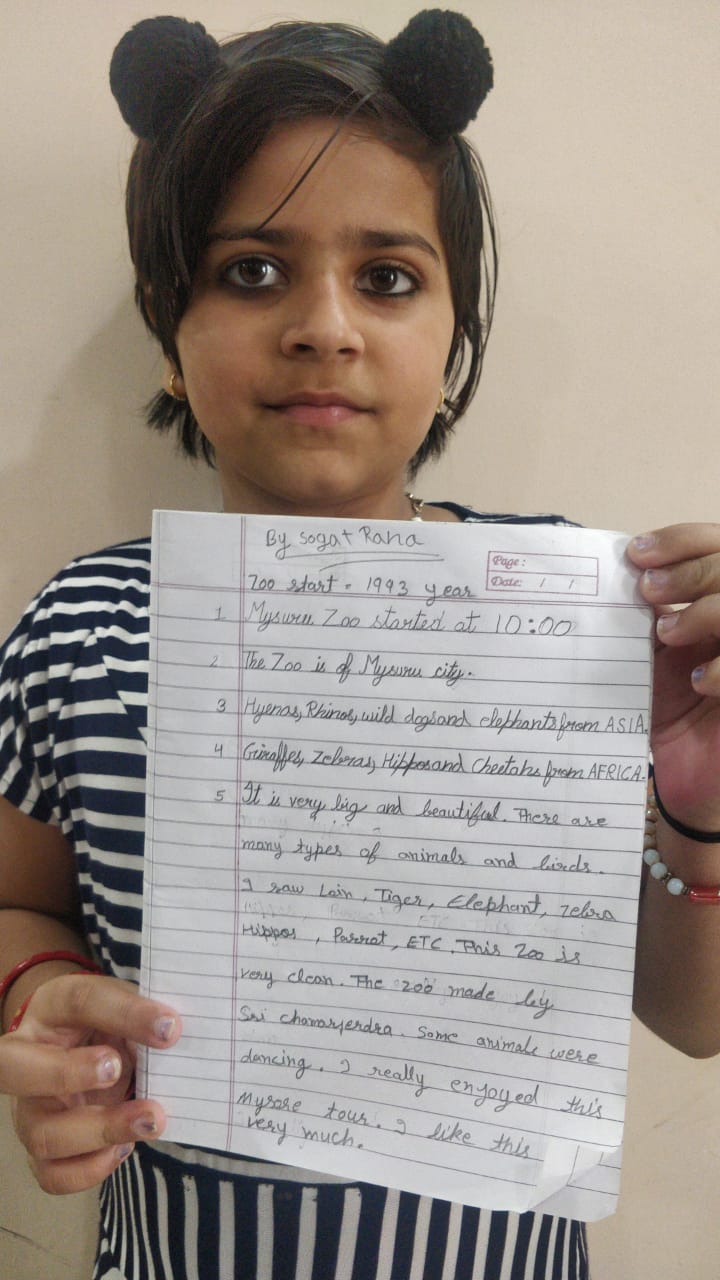 By Sogat Rana
Page:
Date: / /
Zoo start = 1993 year
1 Mysuru Zoo started at 10:00
2 The Zoo is of Mysuru city.
3 Hyenas, Rhinos, wild dogs and elephants from ASIA.
4 Giraffes, Zebras, Hippos and Cheetahs from AFRICA-
5 It is very big and beautiful. There are
many types of animals and birds.
I saw Lain, Tiger, Elephant, Zebra
Hippos, Parrot, ETC. This Zoo is
very clean. The zoo made by
Sri chamarjendra. Some animals were
dancing. I really enyoyed this
Mysore tour. I like this
very much.